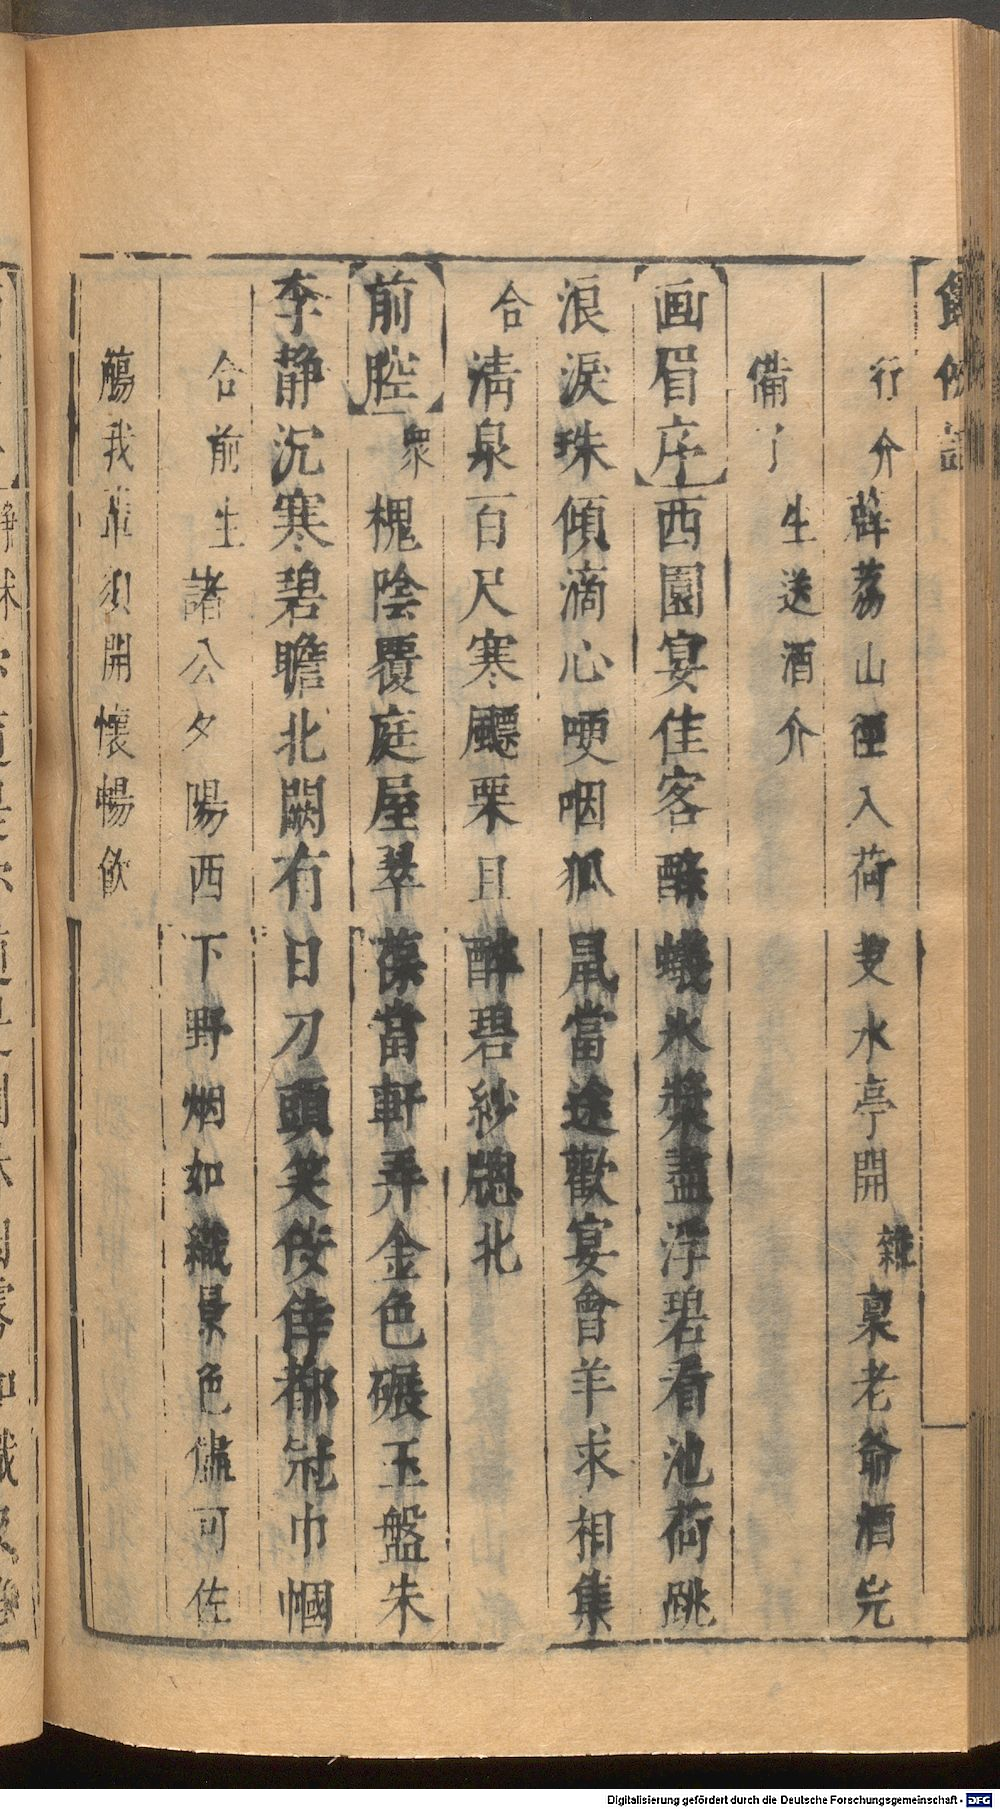 行介薜荔山徑入荷芰水亭開雜禀老爺酒完
備了生送酒介
画眉序西園宴佳客醁蟻氷漿盡浮碧看池荷跳
浪淚珠傾滴心哽咽狐鼠當途歡宴會羊求相集
合清泉百尺寒飀栗且醉碧紗牕北
前腔衆槐陰覆庭屋翠葆當軒弄金色碾玉盤朱
李静沉寒碧瞻北闕有日刀頭笑侫倖都冠巾幗
合前生諸公夕陽西下野烟如織景色儘可佐
觴我輩須開懷暢飲
Digitalisierung gefördert durch die Deutsche Forschungsgemeinschaft - DFG